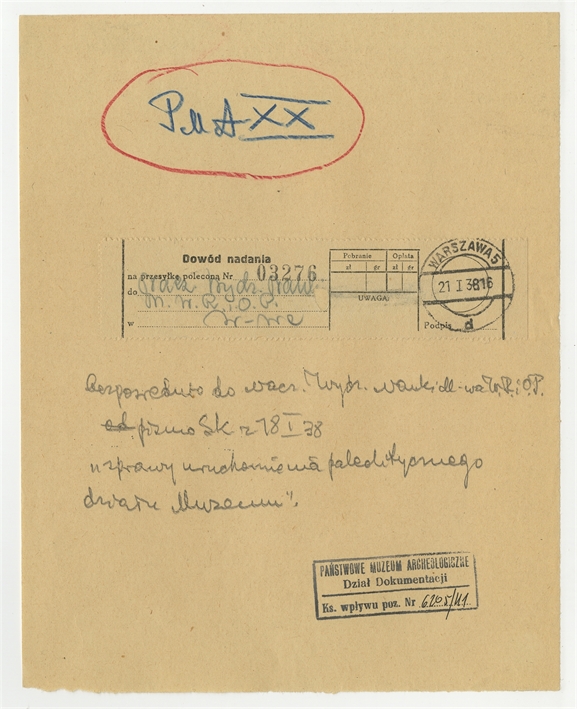 PMA XX
Dowód nadania
na przesyłkę poleconą Nr 03276
do
M.W.R.i O.P.
w W-wie
Pobranie Opłata
zł gr zł gr
UWAGA:
Podpis
WARSZAWA 5
21 I 38 16
d
Bezpośrednio do nacz. Wydz. Nauki
od pismo SK z 18 I 38
"sprawy uruchomienia paleolitycznego
działu Muzeum".
PAŃSTWOWE MUZEUM ARCHEOLOGICZNE
Dział Dokumentacji
Ks. wpływu poz. Nr 6205/41